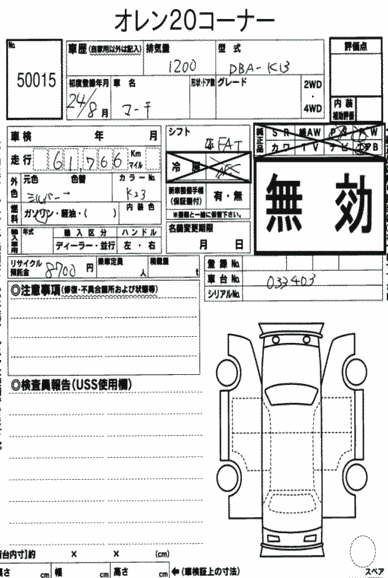 オレン20コーナー
No.
50015
車歴 (自家用以外は記入)
排気量
1200
型式
DBA-K13
評価点
初度登録年月
24/8月
車名
マーチ
形状・ドア数
グレード
2WD
・
4WD
内装
補助評価
車検 年 月
シフト
FAT
純正品
SR 革AW PS PW
カワ TV ナビ
走行 61,766 Km
マイル
冷房
外色
元色 色替
シルバー →
カラーNo.
K23
新車整備手帳
(保証書付)
有・無
※書類と一緒に保管下さい。
無効
燃料
ガソリン・軽油・( )
内装色
名義変更期限
月 日
輸入車用
年式
輸入区分
ハンドル
ディーラー・並行
左・右
リサイクル
預託金
8700 円
乗車定員
人
積載量
t
登録No.
車台No. 033403
シリアルNo.
◎注意事項(修復・不具合箇所および状態等)
◎検査員報告(USS使用欄)
荷台内寸)約 × × (cm)
長さ cm 幅 cm 高さ cm
←(車検証上の寸法)
スペア